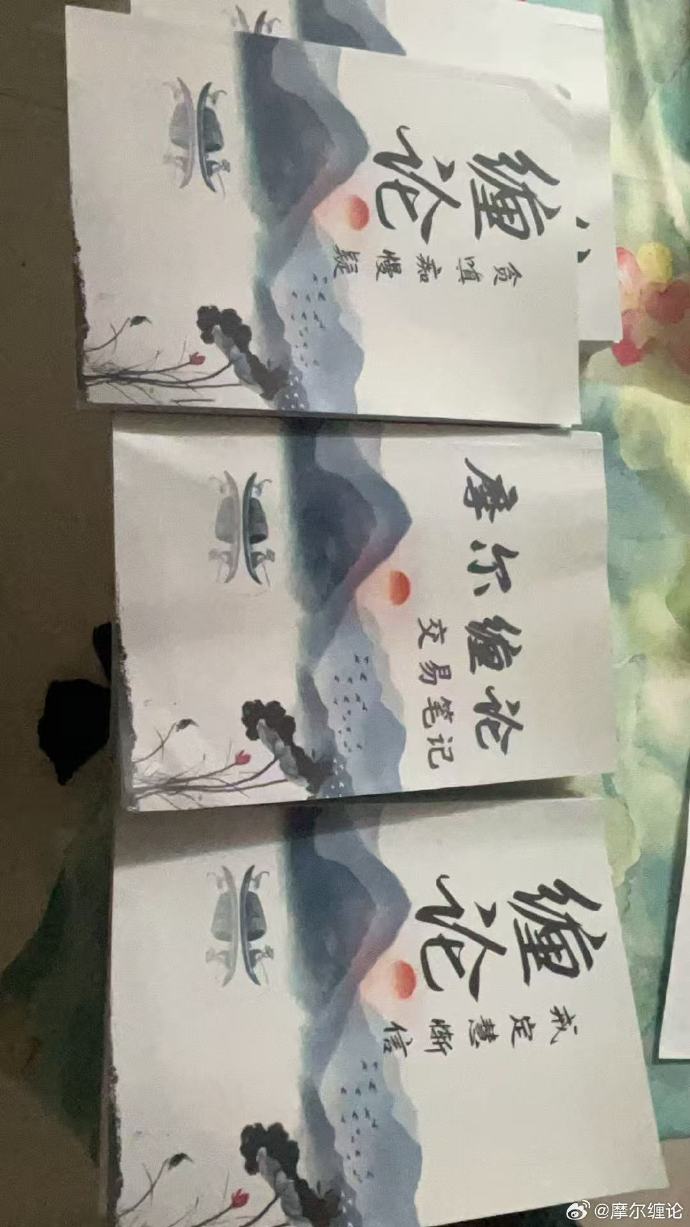 缠论
贪嗔痴慢疑
摩尔缠论
交易笔记
缠论
戒定慧惭信
@摩尔缠论